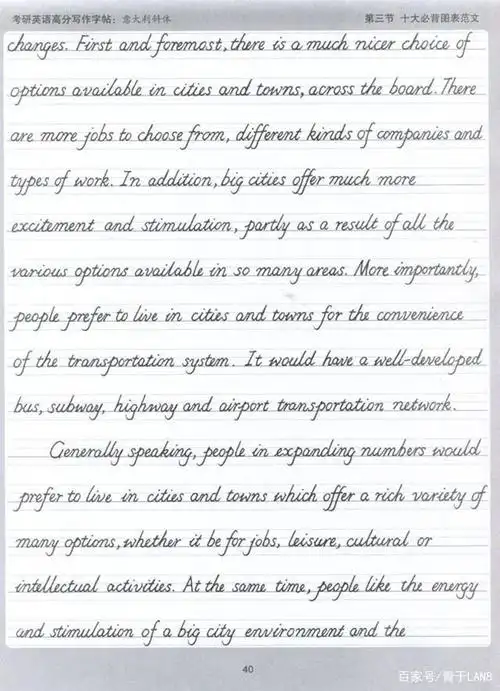 考研英语高分写作字帖：意大利斜体
第三节 十大必背图表范文
changes. First and foremost, there is a much nicer choice of
options available in cities and towns, across the board. There
are more jobs to choose from, different kinds of companies and
types of work. In addition, big cities offer much more
excitement and stimulation, partly as a result of all the
various options available in so many areas. More importantly,
people prefer to live in cities and towns for the convenience
of the transportation system. It would have a well-developed
bus, subway, highway and airport transportation network.
Generally speaking, people in expanding numbers would
prefer to live in cities and towns which offer a rich variety of
many options, whether it be for jobs, leisure, cultural or
intellectual activities. At the same time, people like the energy
and stimulation of a big city environment and the
40
百家号/骨干LAN8